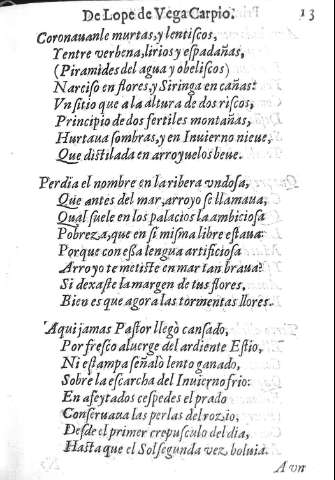 De Lope de Vega Carpio. 13
Coronauanle murtas, y lentiſcos,
Yentre verbena, lirios y eſpadañas,
(Piramides del agua y obeliſcos)
Narciſo en flores, y Siringa en cañas:
Vn ſitio que a la altura de dos riſcos,
Principio de dos fertiles montañas,
Hurtaua ſombras, y en Inuierno nieue,
Que diſtilada en arroyuelos beue.
Perdia el nombre en la ribera vndoſa,
Que antes del mar, arroyo ſe llamaua,
Qual ſuele en los palacios la ambicioſa
Pobreza, que en ſi miſma libre eſtaua:
Porque con eſſa lengua artificioſa
Arroyo te metiſte en mar tan braua?
Si dexaſte la margen de tus flores,
Bien es que agora las tormentas llores.
Aqui jamas Paſtor llegò canſado,
Por freſco aluerge del ardiente Eſtio,
Ni eſtampa ſeñalò lento ganado,
Sobre la eſcarcha del Inuierno frio:
En aſeytados ceſpedes el prado
Conſeruaua las perlas del rozio,
Deſde el primer crepuſculo del dia,
Haſta que el Sol ſegunda vez boluia.
A vn